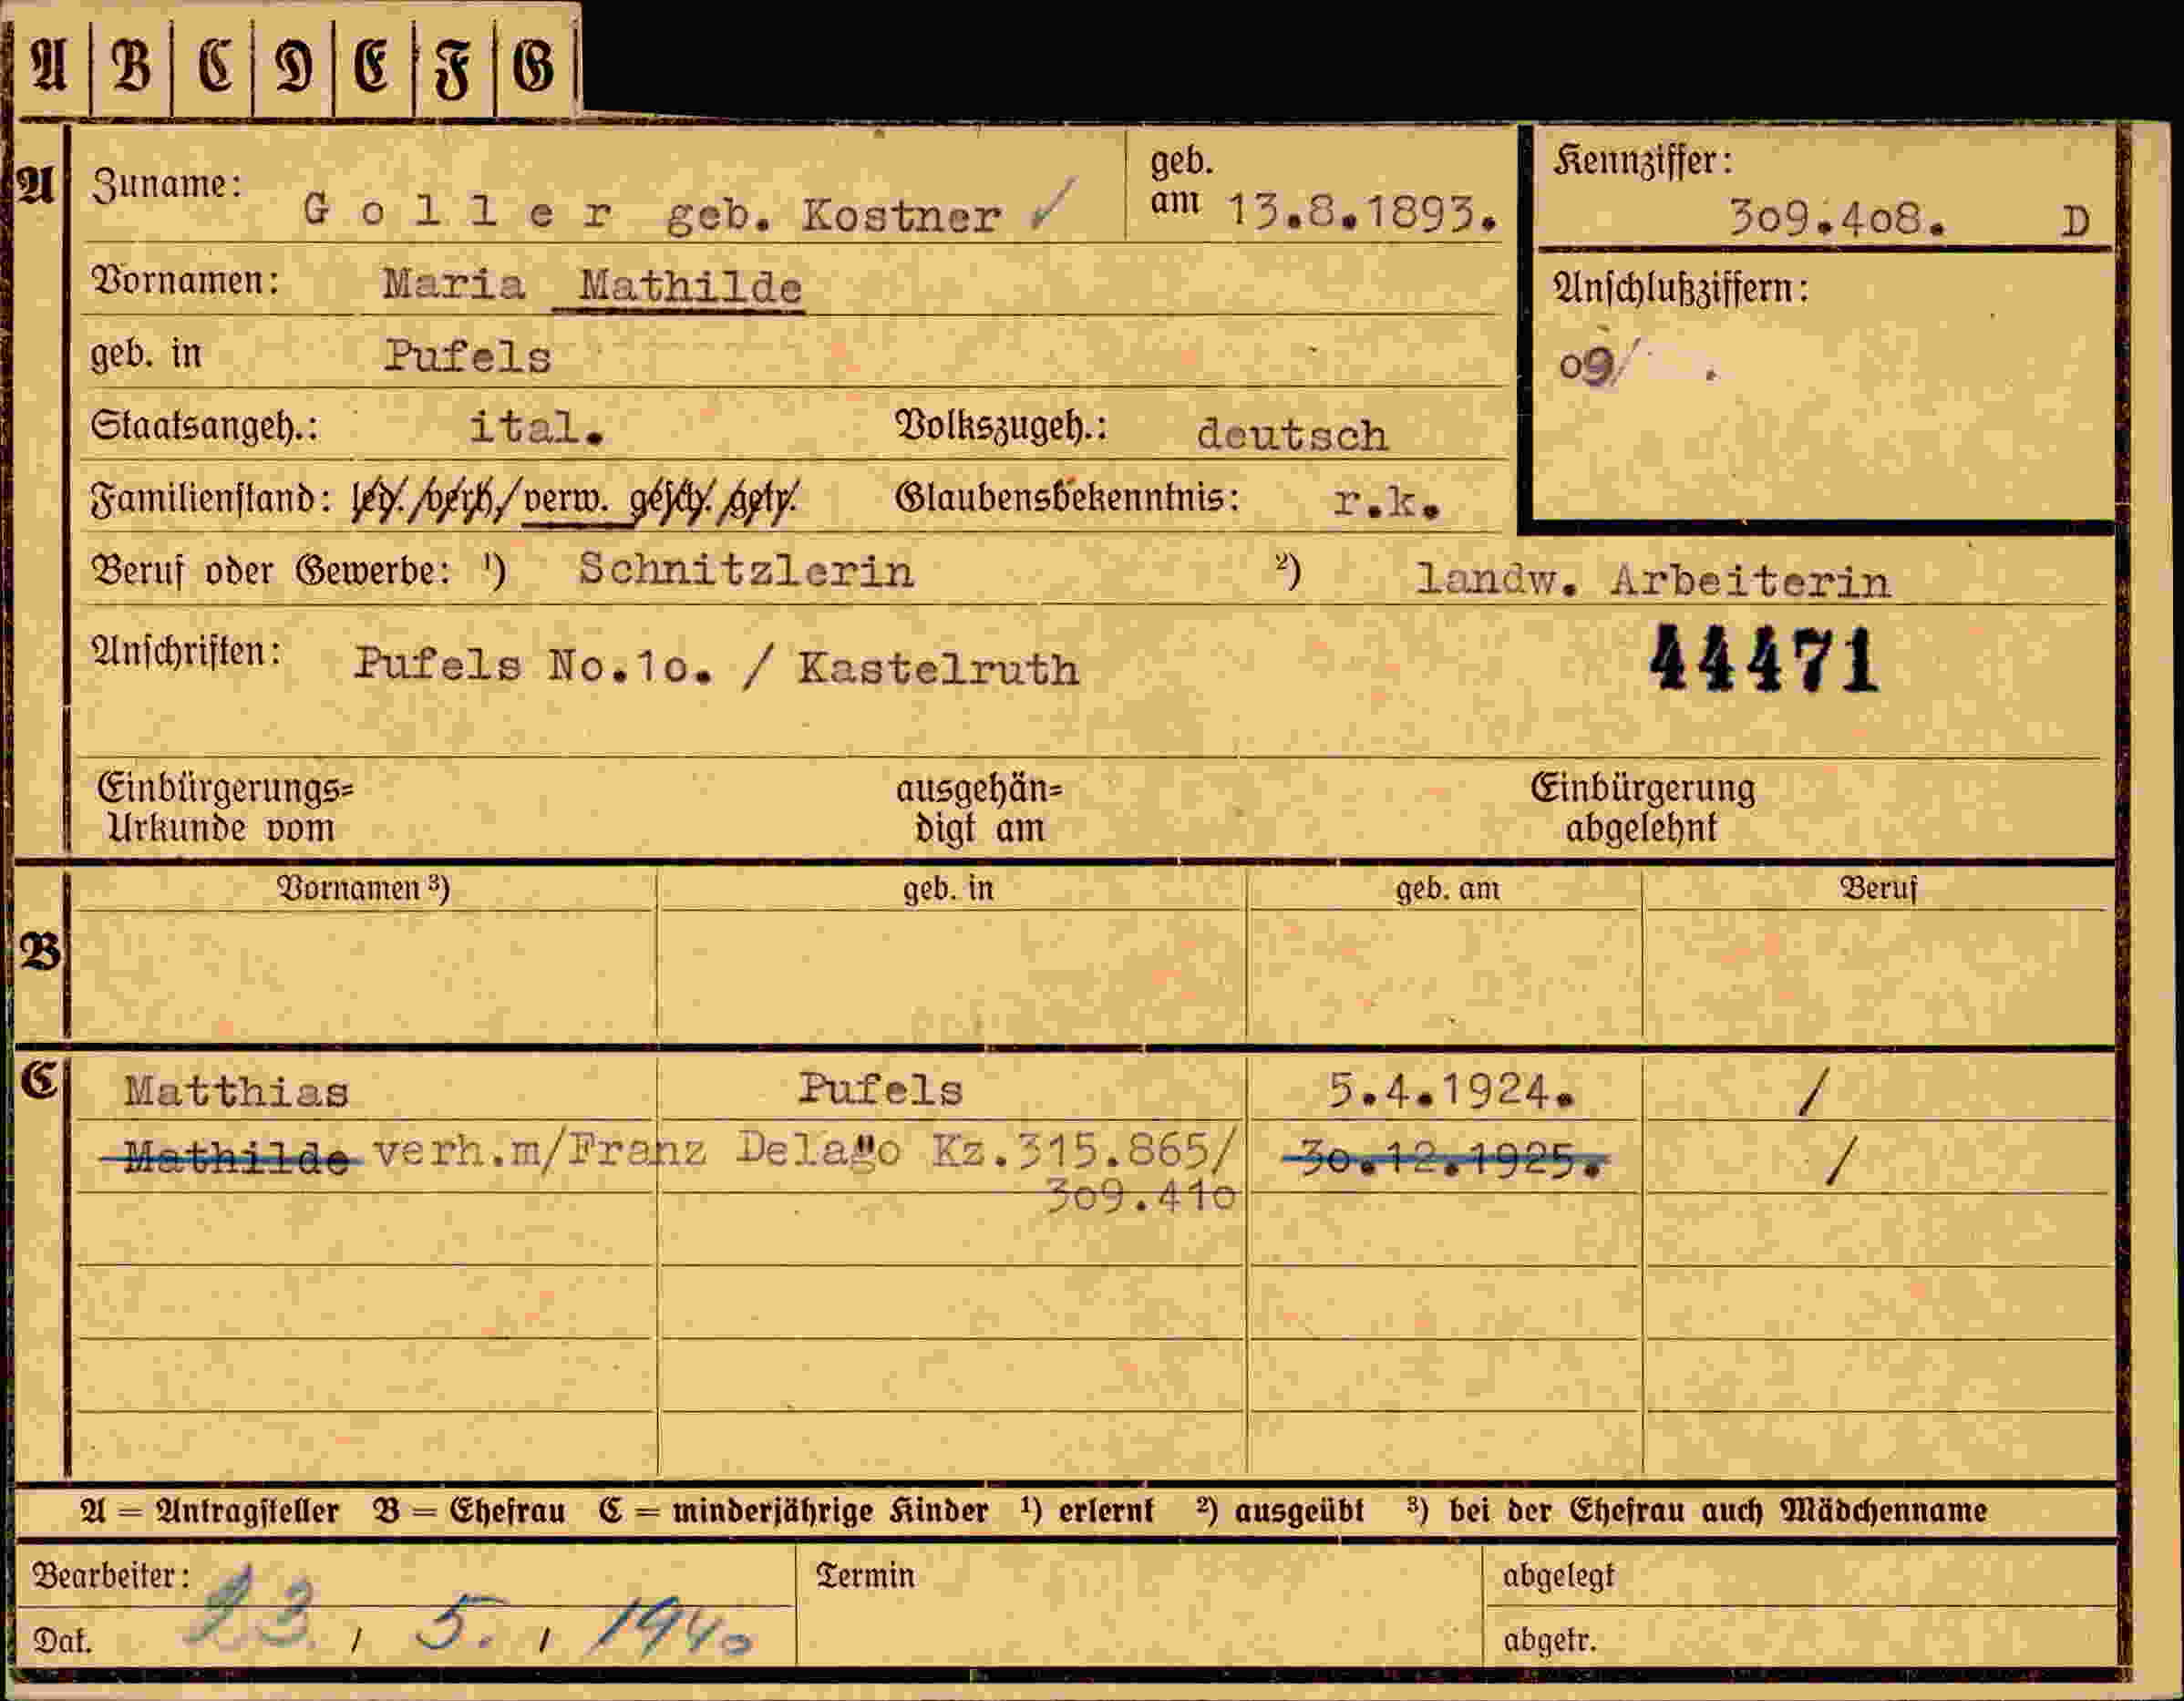 A B C D E F G
A Zuname: Goller geb. Kostner ✓ geb. am 13.8.1893. Kennziffer: 309.408. D
Vornamen: Maria Mathilde Anschlußziffern:
geb. in Pufels 09/ .
Staatsangeh.: ital. Volkszugeh.: deutsch
Familienstand: led./verh./verw. gesch./getr. Glaubensbekenntnis: r.k.
Beruf oder Gewerbe: ¹) Schnitzlerin ²) landw. Arbeiterin
Anschriften: Pufels No.1o. / Kastelruth 44471
Einbürgerungs= ausgehän= Einbürgerung
Urkunde vom digt am abgelehnt
Vornamen ³) geb. in geb. am Beruf
B
C Matthias Pufels 5.4.1924. /
Mathilde verh.m/Franz Delago Kz.315.865/ 3o.12.1925. /
3o9.41o
A = Antragsteller B = Ehefrau C = minderjährige Kinder ¹) erlernt ²) ausgeübt ³) bei der Ehefrau auch Mädchenname
Bearbeiter: Termin abgelegt
Dat. 23. / 5. / 1940 abgetr.